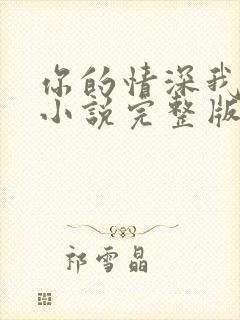 你的情深我
小说完整版
祁雪晶